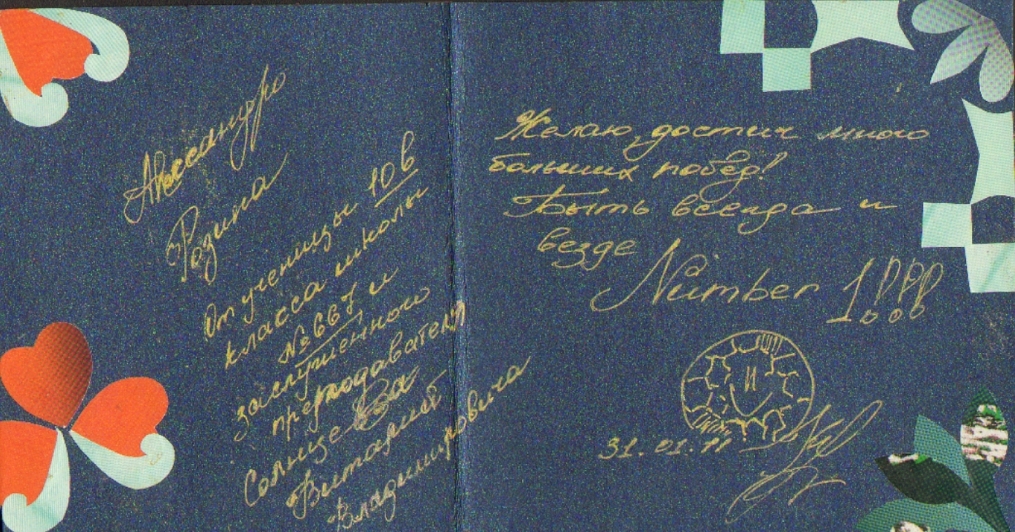 Александро
Розина
От ученицы 10 в
класса школы
№667 и
заслуженного
преподавателя
Солнцева
Виталия
Владимировича
Желаю, достич много
больших побед!
Быть всегда и
везде
Number 1!!!!
И
31.01.11